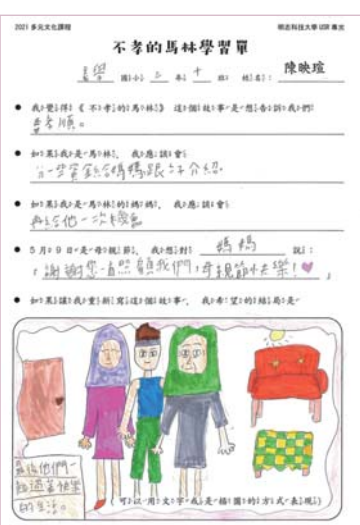 2021 多元文化課程 明志科技大學 USR 專案
不孝的馬林學習單
國小 三 年 十 班 姓名: 陳映瑄
● 我覺得《不孝的馬林》這個故事是想告訴我們
要孝順。
● 如果我是馬林, 我應該會
● 如果我是馬林的媽媽, 我應該會
再給他一次機會
● 5 月 9 日是母親節, 我想對 媽媽 說:
「謝謝您一直照顧我們,母親節快樂!♥」
● 如果讓我重新寫這個故事, 我希望的結局是
最後他們一
起過著快樂
的生活。
(可以用文字或是插圖的方式表現)